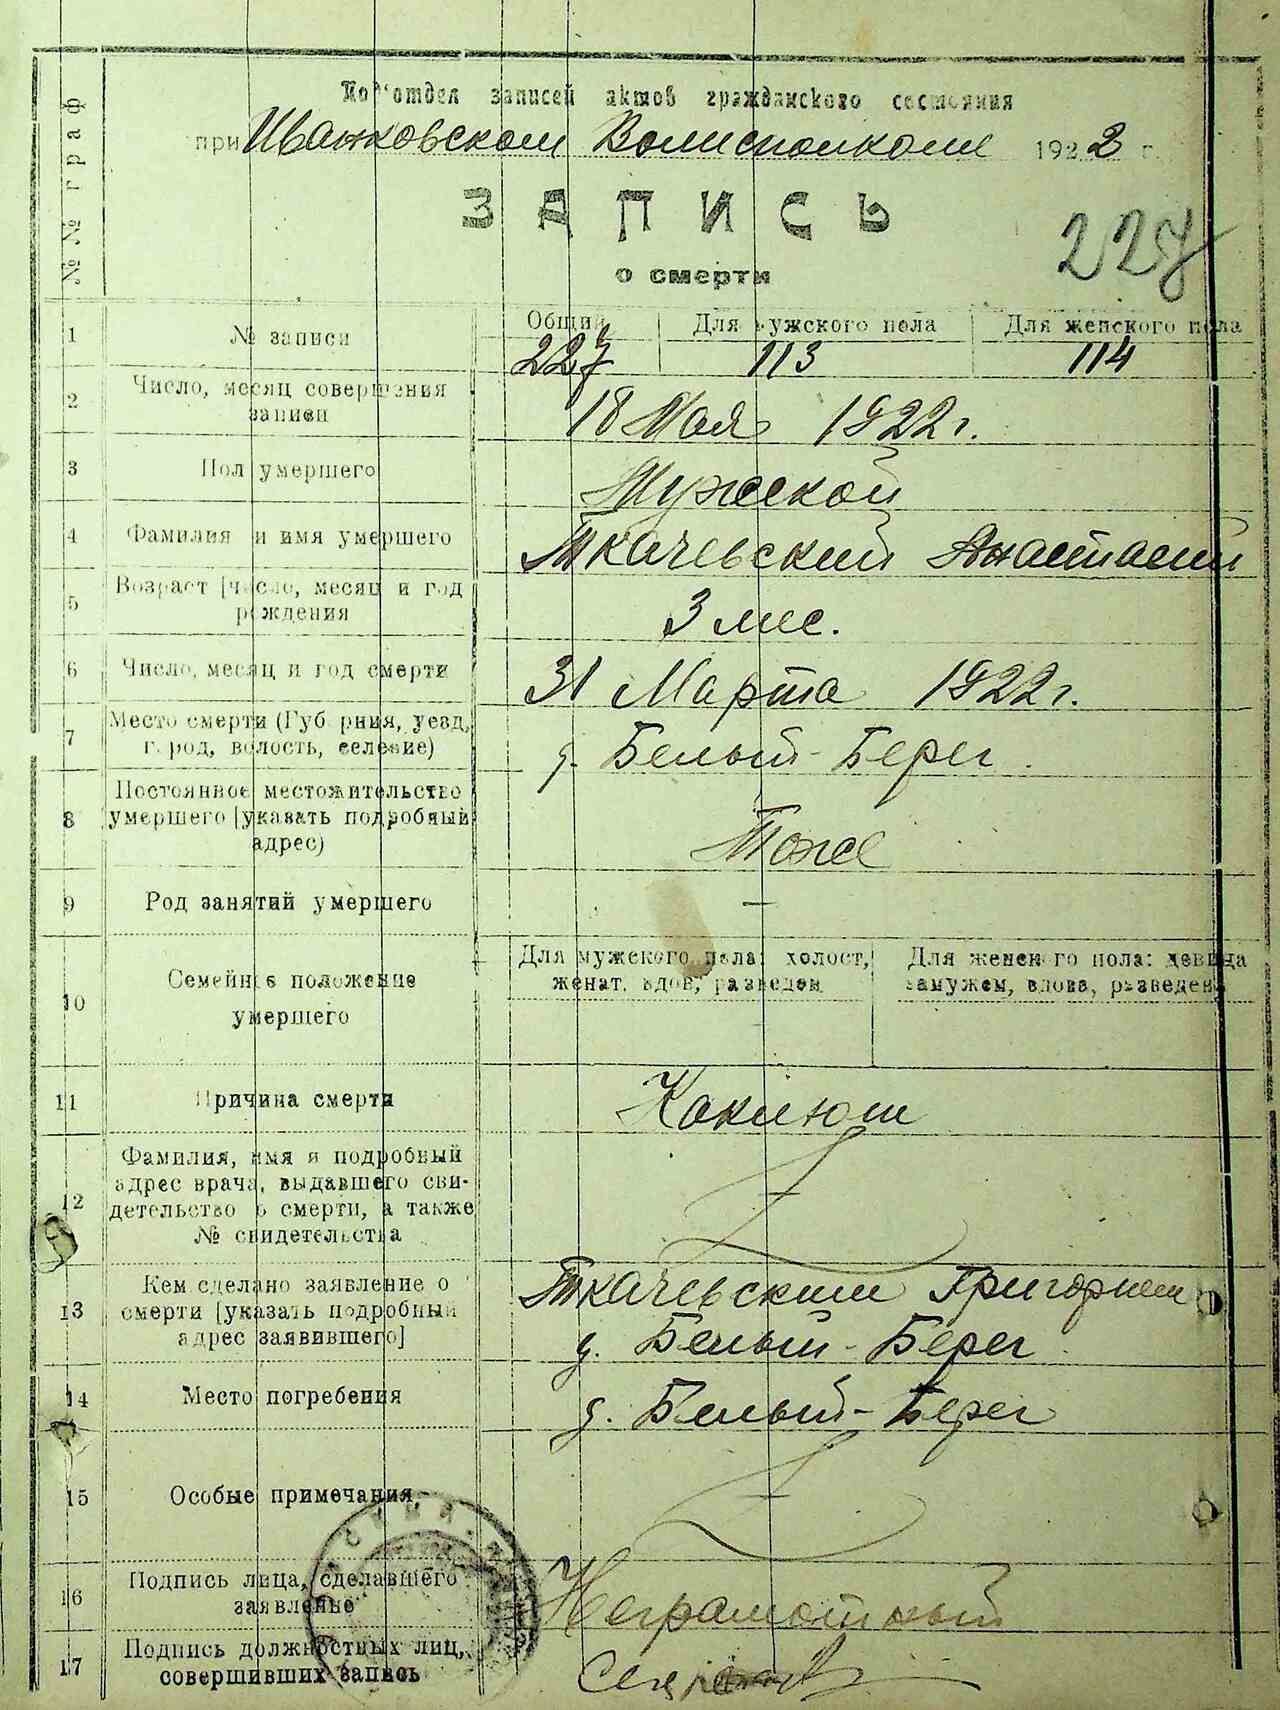 №№ граф
Подотдел записей актов гражданского состояния
при Иванковском Волисполкоме 1922 г.
ЗАПИСЬ
о смерти
227
1 № записи Общий Для мужского пола Для женского пола
227 113 114
2 Число, месяц совершения
записи
18 Мая 1922 г.
3 Пол умершего Мужской
4 Фамилия и имя умершего Ткачевский Анастасий
5 Возраст [число, месяц и год
рождения
3 мес.
6 Число, месяц и год смерти 31 Марта 1922 г.
7 Место смерти (Губерния, уезд,
город, волость, селение)
д. Белый-Берег
8 Постоянное местожительство
умершего [указать подробный
адрес)
Тоже
9 Род занятий умершего —
10 Семейное положение
умершего
Для мужского пола: холост,
женат, вдов, разведен
Для женского пола: девица
замужем, вдова, разведена
11 Причина смерти Коклюш
12 Фамилия, имя и подробный
адрес врача, выдавшего сви-
детельство о смерти, а также
№ свидетельства
13 Кем сделано заявление о
смерти [указать подробный
адрес заявившего]
Ткачевским Григорием
д. Белый-Берег
14 Место погребения д. Белый-Берег
15 Особые примечания
16 Подпись лица, сделавшего
заявление
Неграмотный
17 Подпись должностных лиц,
совершивших запись